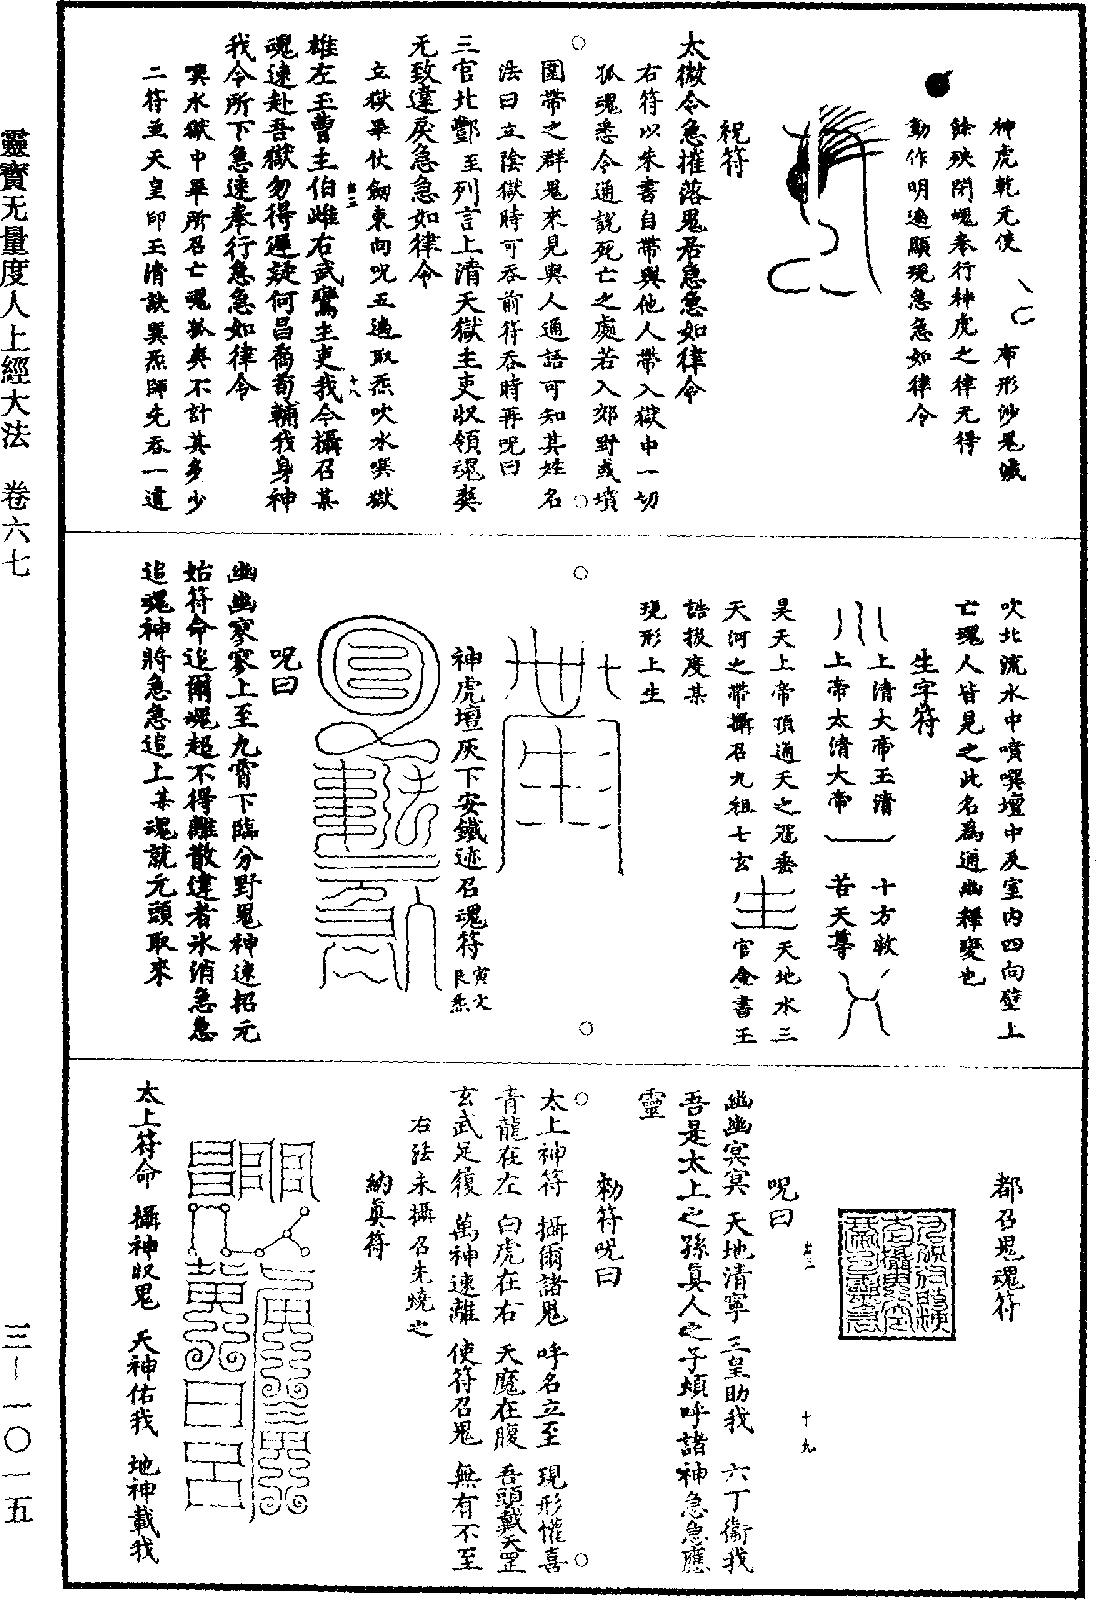 神虎乾元使　布形沙鬼滅
餘殃閉魂奉行神虎之律无得
動作明適顯現急急如律令
祝符
太微令急摧落鬼君急急如律令
右符以朱書自帶與他人帶入獄中一切
孤魂悉令通說死亡之處若入郊野或墳
園帶之群鬼來見與人通語可知其姓名
法曰立陰獄時可吞前符吞時再呪曰
三官北酆至列言上清天獄主吏收領魂爽
无致違戾急急如律令
立獄畢仗劍東向呪五遍取炁吹水噀獄
雄左玉曹主伯雌右武鸞主吏我令攝召某
魂速赴吾獄勿得遲疑何昌喬荀輔我身神
我令所下急速奉行急急如律令
噀水獄中畢所召亡魂孤爽不計其多少
二符並天皇印玉清訣巽炁師先吞一道
十八
吹北流水中噴噀壇中及室內四向壁上
亡魂人皆見之此名為通幽釋變也
生字符
上清大帝玉清　十方救
上帝太清大帝　苦天尊
昊天上帝頂通天之冠垂　天地水三
天河之帶攝召九祖七玄　官金書玉
誥拔度某
現形上生
神虎壇灰下安鐵迹召魂符寅文艮炁
呪曰
幽幽寥寥上至九霄下臨分野鬼神速招元
始符命追爾魂超不得離散違者氷消急急
追魂神將急急追上某魂就元頭取來
都召鬼魂符
呪曰
幽幽冥冥　天地清寧　三皇助我　六丁衞我
吾是太上之孫真人之子煩呼諸神急急應
靈
十九
勑符呪曰
太上神符　攝爾諸鬼　呼名立至　現形懽喜
青龍在左　白虎在右　天魔在腹　吾頭戴天罡
玄武足履　萬神速離　使符召鬼　無有不至
右法未攝召先燒之
納真符
太上符命　攝神收鬼　天神佑我　地神載我
靈寶无量度人上經大法　卷六七
三－一〇一五